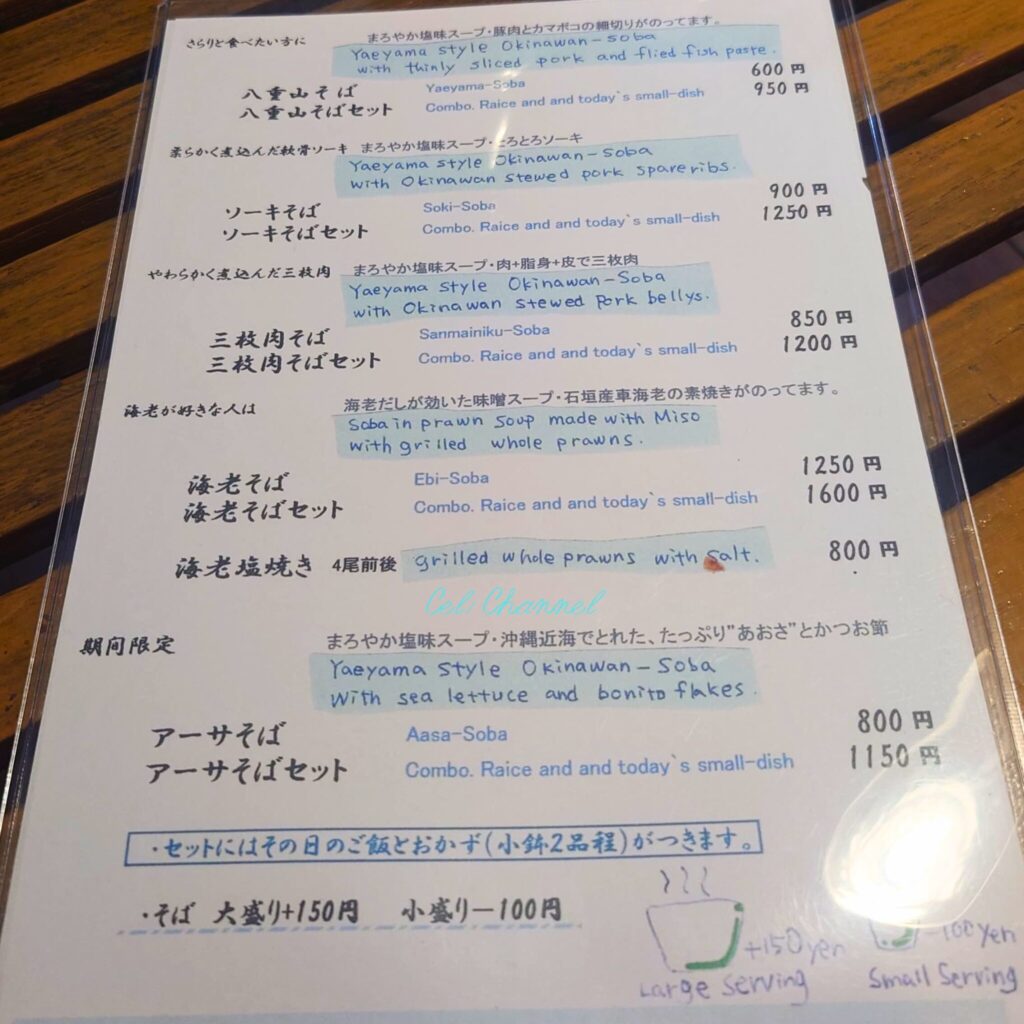 さらりと食べたい方に まろやか塩味スープ・豚肉とカマボコの細切りがのってます。
Yaeyama style Okinawan-soba
with thinly sliced pork and flied fish paste.
八重山そば Yaeyama-Soba 600 円
八重山そばセット Combo. Raice and and today`s small-dish 950 円
柔らかく煮込んだ軟骨ソーキ まろやか塩味スープ・とろとろソーキ
Yaeyama style Okinawan-Soba
with Okinawan stewed pork spareribs.
ソーキそば Soki-Soba 900 円
ソーキそばセット Combo. Raice and and today`s small-dish 1250 円
やわらかく煮込んだ三枚肉 まろやか塩味スープ・肉+脂身+皮で三枚肉
Yaeyama style Okinawan-Soba
with Okinawan stewed pork bellys.
三枚肉そば Sanmainiku-Soba 850 円
三枚肉そばセット Combo. Raice and and today`s small-dish 1200 円
海老が好きな人は 海老だしが効いた味噌スープ・石垣産車海老の素焼きがのってます。
Soba in prawn soup made with Miso
with grilled whole prawns.
海老そば Ebi-Soba 1250 円
海老そばセット Combo. Raice and and today`s small-dish 1600 円
海老塩焼き 4尾前後 grilled whole prawns with salt. 800 円
Cel Channel
期間限定 まろやか塩味スープ・沖縄近海でとれた、たっぷり"あおさ"とかつお節
Yaeyama style Okinawan-Soba
with sea lettuce and bonito flakes.
アーサそば Aasa-Soba 800 円
アーサそばセット Combo. Raice and and today`s small-dish 1150 円
・セットにはその日のご飯とおかず(小鉢2品程)がつきます。
・そば 大盛り+150円 小盛りー100円
+150yen -100yen
Large serving Small Serving